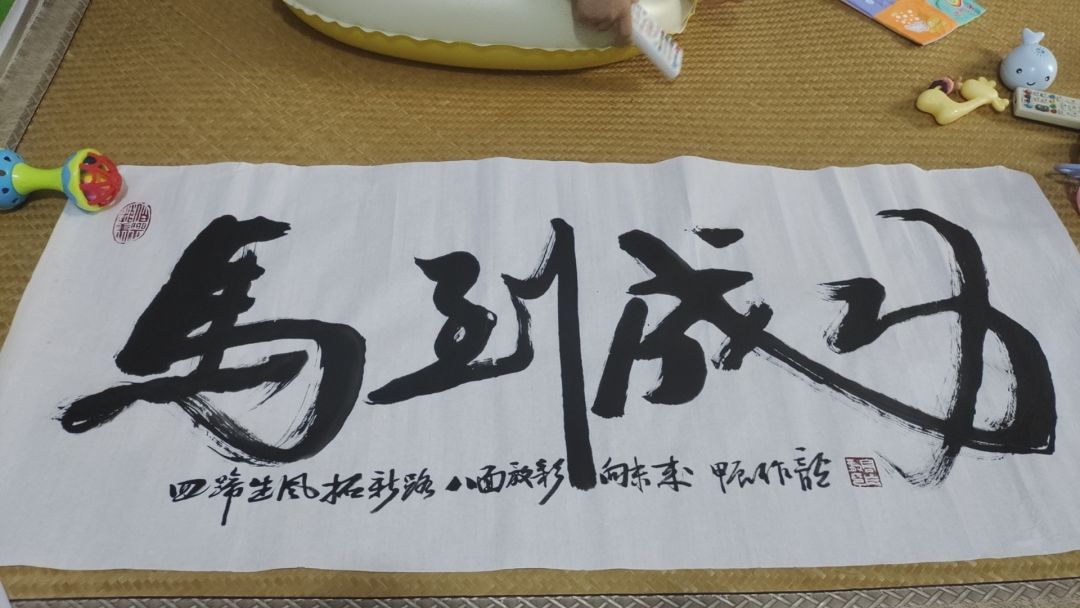 馬到成功
四蹄生风拓新路 八面放彩向未来 甲辰作